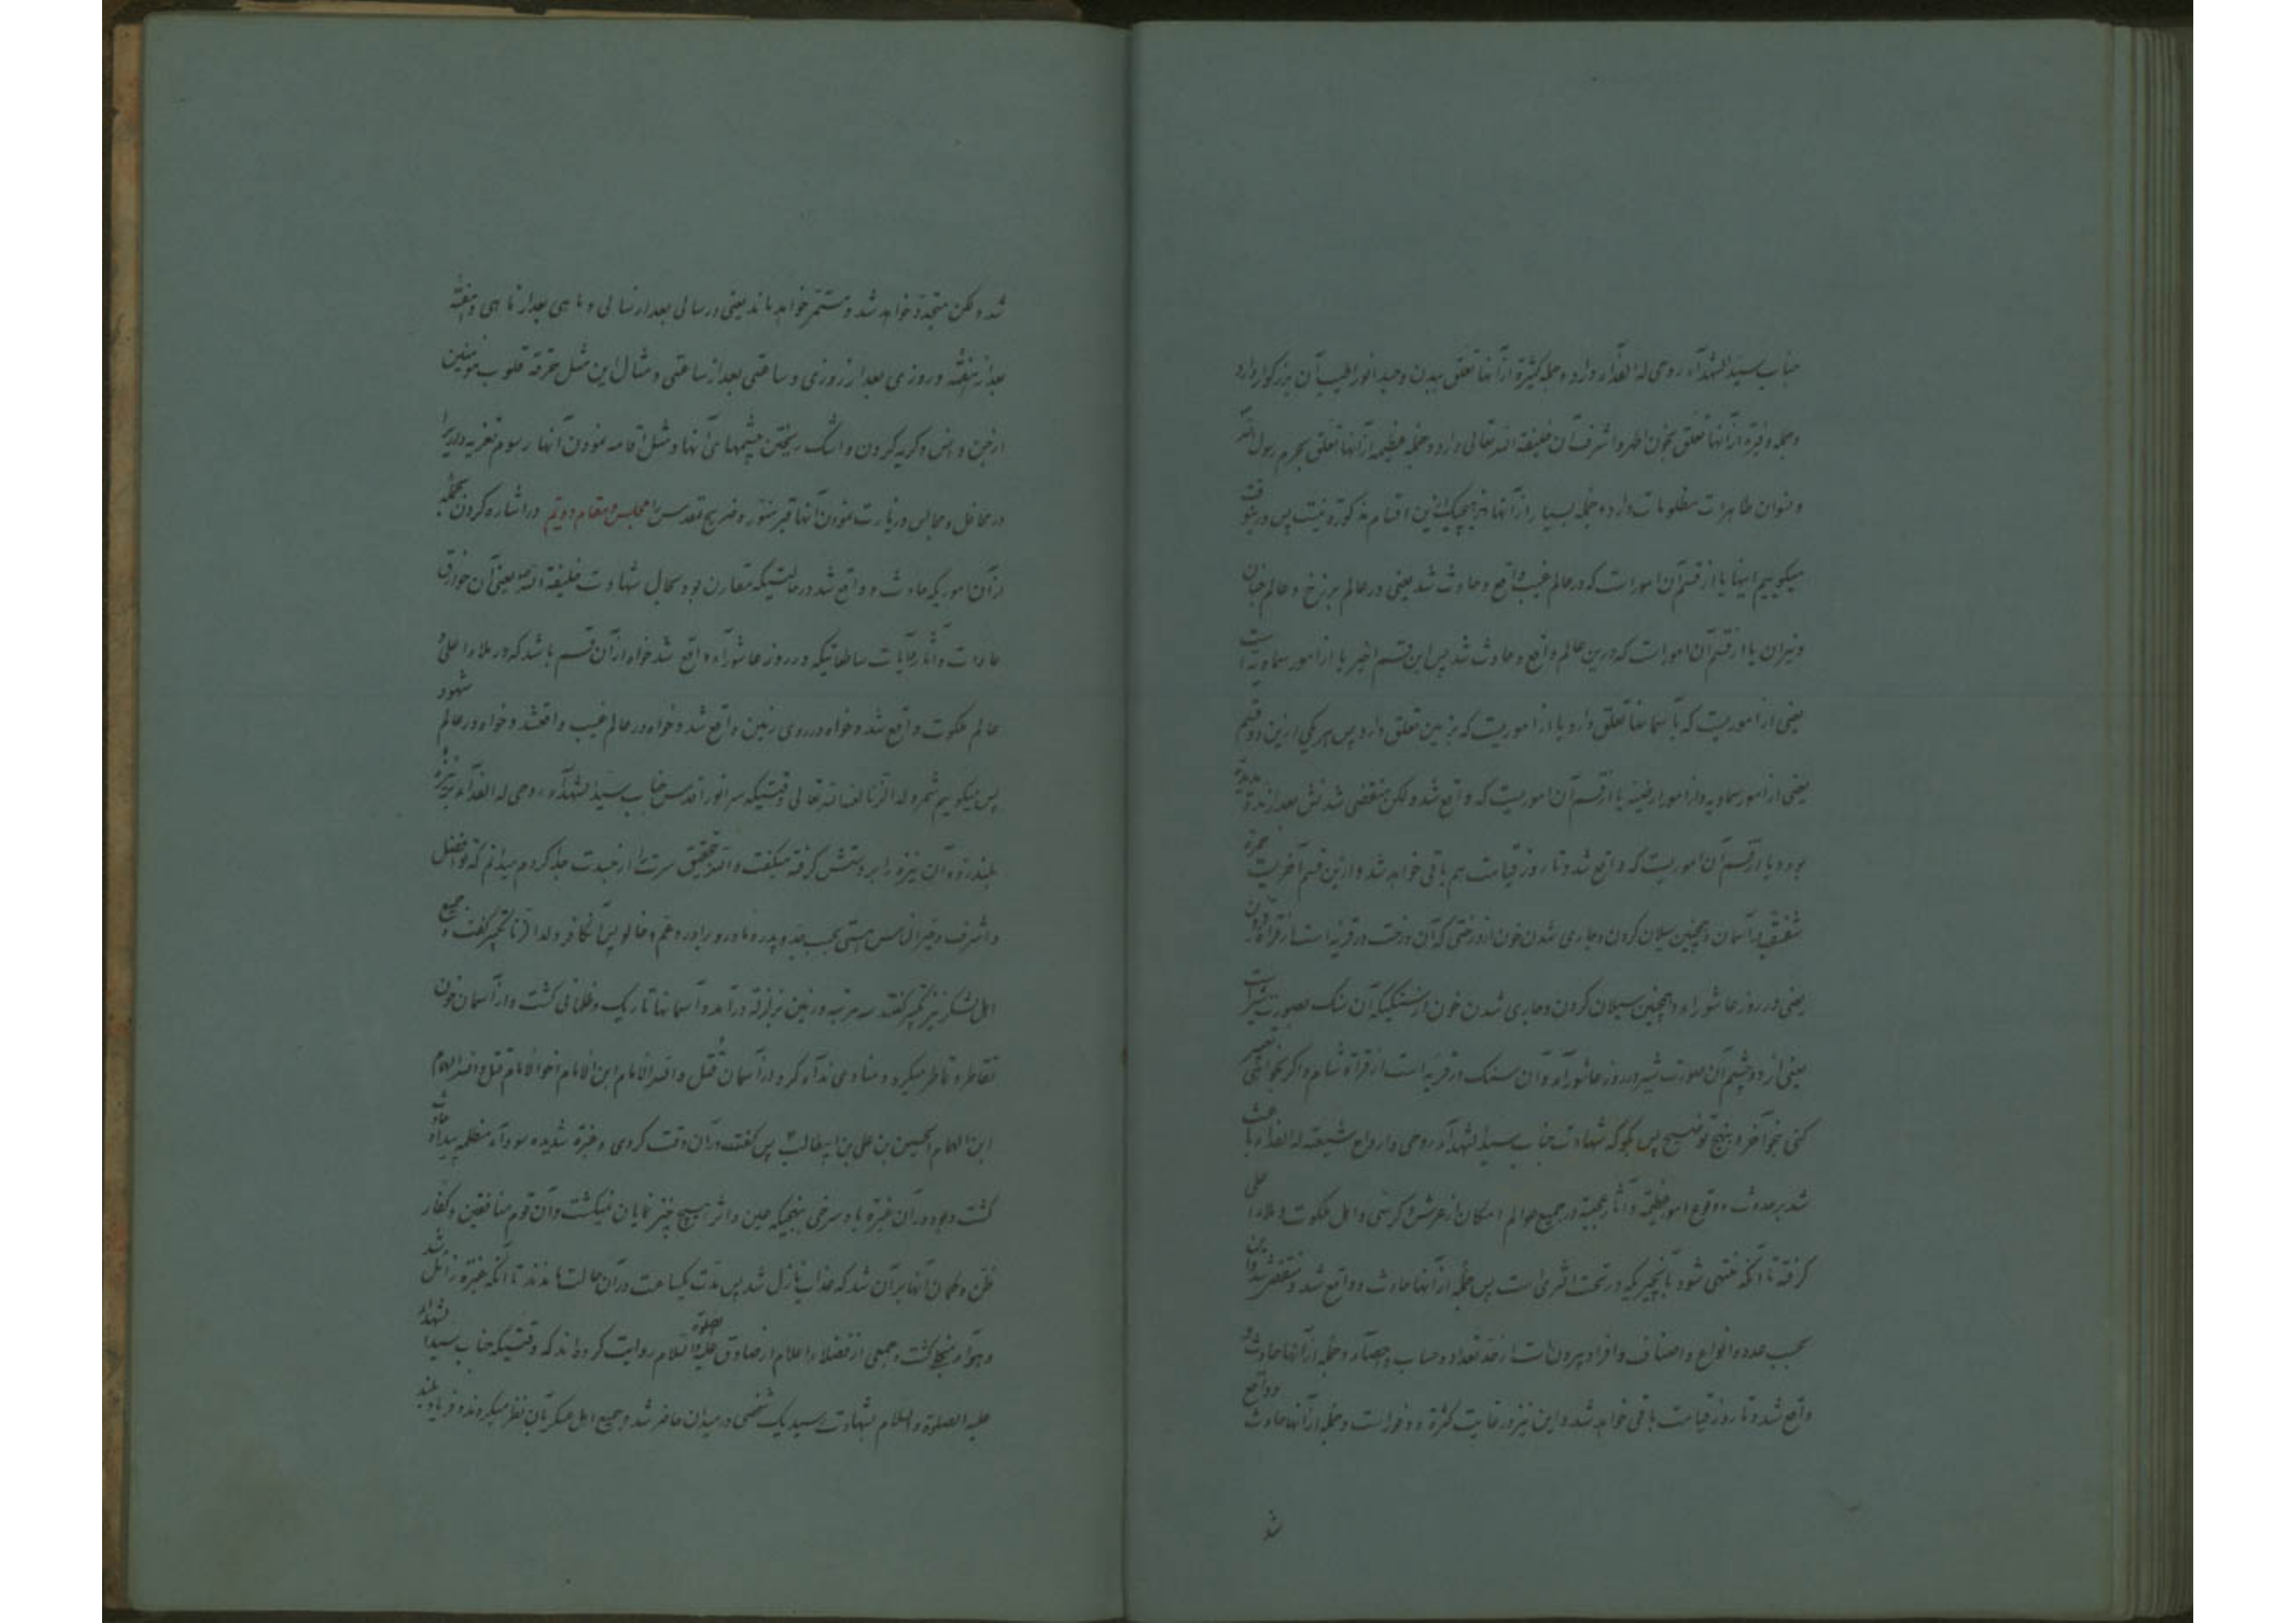 جناب سید الشهدآء روحی له الفدآء دارد و جمله کثیرة از آنها تعلق ببدن و جسد انور اطیب آن بزرکوار دارد
و جمله وفیرة از آنها تعلق بخون اطهر و اشرف آن خلیفة الله تعالی دارد و جمله عظیمه از آنها تعلق بحرم رسول الله
و نسوان طاهرات مظلومات دارد و جمله بسیار از آنها از این اقسام مذکوره نیست پس درینوقت
میکوییم اینها یا از قسم آن امورات که در عالم غیب واقع و حادث شد یعنی در عالم برزخ و عالم جنان
و نیران یا از قسم آن امورات که درین عالم واقع و حادث شد پس این قسم اخیر یا از امور سماویه است
یعنی از اموریست که بآسمانها تعلق دارد یا از اموریست که بزمین تعلق دارد پس هر یکی ازین دو قسم
یعنی از امور سماویه و از امور ارضیه یا از قسم آن اموریست که واقع شد ولکن منقضی شدنش بعد از مدة مدیدة
بود و یا از قسم آن اموریست که واقع شد و تا روز قیامت هم باقی خواهد شد و ازین قسم آخریست حمرة
شفقیه در آسمان و همچنین سیلان کردن و جاری شدن خون از درختی که آن درخت در قریه است از قراء قزوین
یعنی در روز عاشوراء و همچنین سیلان کردن و جاری شدن خون از سنکیکه آن سنک بصورت شیر است
یعنی از دو چشم آن صورت شیر در روز عاشورآء و آن سنک در قریه است از قراء شام و اکر بخواهی تعبیر
کنی بنحو آخر و بنهج توضیح پس بکو که شهادت جناب سید الشهدآء روحی و ارواح شیعته له الفداء باعث
شد بر حدوث و وقوع امور عظیمة و آثار عجیبة در جمیع عوالم امکان از عرش و کرسی و اهل ملکوت و ملاء اعلی
کرفته تا آنکه منتهی شود بآنچیزیکه در تحت الثری است پس جمله از آنها حادث و واقع شد و منقضی شد و این
بحسب عدد و انواع و اصناف و افراد بیرون است از حد تعداد و حساب و احصآء و جمله از آنها حادث و
واقع شد و تا روز قیامت باقی خواهد شد و این نیز در غایت کثرة و وفور است و جمله از آنها حادث و واقع
شد
شد ولکن متجدد خواهد شد و مستمر خواهد ماند یعنی در سالی بعد از سالی و ماهی بعد از ماهی و هفتهٔ
بعد از هفتهٔ و روزی بعد از روزی و ساعتی بعد از ساعتی و مثال این مثل حرقة قلوب مومنین
از جن و انس و کریه کردن و اشک ریختن چشمهای آنها و مثل اقامه نمودن آنها رسوم تعزیه داری را
در محافل و مجالس و زیارت نمودن آنها قبر منور و ضریح مقدس را مجلس و مقام دویم در اشاره کردن بجمله
از آن اموریکه حادث و واقع شد در حالتیکه مقارن بود بحال شهادت خلیفة الله یعنی آن خوارق
عادات و آثار و آیات ساطعاتیکه در روز عاشورآء واقع شد خواه از آن قسم باشد که در ملاء اعلی و
عالم ملکوت واقع شد و خواه در روی زمین واقع شد و خواه در عالم غیب واقعشد و خواه در عالم شهود
پس میکوییم شمر ولد الزنا لعنه الله تعالی وقتیکه سر انور اقدس جناب سید الشهدآء روحی له الفدآء بنیزه
بلند زد و آن نیزه را بر دستش کرفته میکفت والله بتحقیق سرت را از جسدت جدا کردم میدانم که تو افضل
و اشرف و خیر الناس هستی بحسب جد و پدر و مادر و برادر و عم و خالو پس آنکافر ولد الزنا تکبیر کفت و جمیع
اهل لشکر نیز تکبیر کفتند سه مرتبه و زمین بزلزله درآمد و آسمانها تاریک و ظلمانی کشت و از آسمان خون
تقاطر میکرد و منادی ندآء کرد از آسمان قتل والله الامام ابن الامام اخو الامام قتل والله الهمام
ابن الهمام الحسین بن علی بن ابیطالب پس در آن وقت کردی و غبرة شدیده سودآء مظلمه پیدا و حادث
کشت و بود در آن غبره باد سرخی بنهجیکه عین و اثر هیچ چیز نمایان نمیکشت و آن قوم منافقین و کفار
ظن و کمان آنها بر آن شد که عذاب نازل شد پس مدت یکساعت در آن حالت ماندند تا آنکه غبره زائل شد
و هوآء منجلی کشت و جمعی از فضلاء اعلام از صادق علیه الصلوة والسلام روایت کرده اند که وقتیکه جناب سید الشهداء
علیه الصلوة والسلام بشهادت رسید یک شخصی در میدان حاضر شد و جمیع اهل عسکر بآن نظر میکردند و فریاد بلند